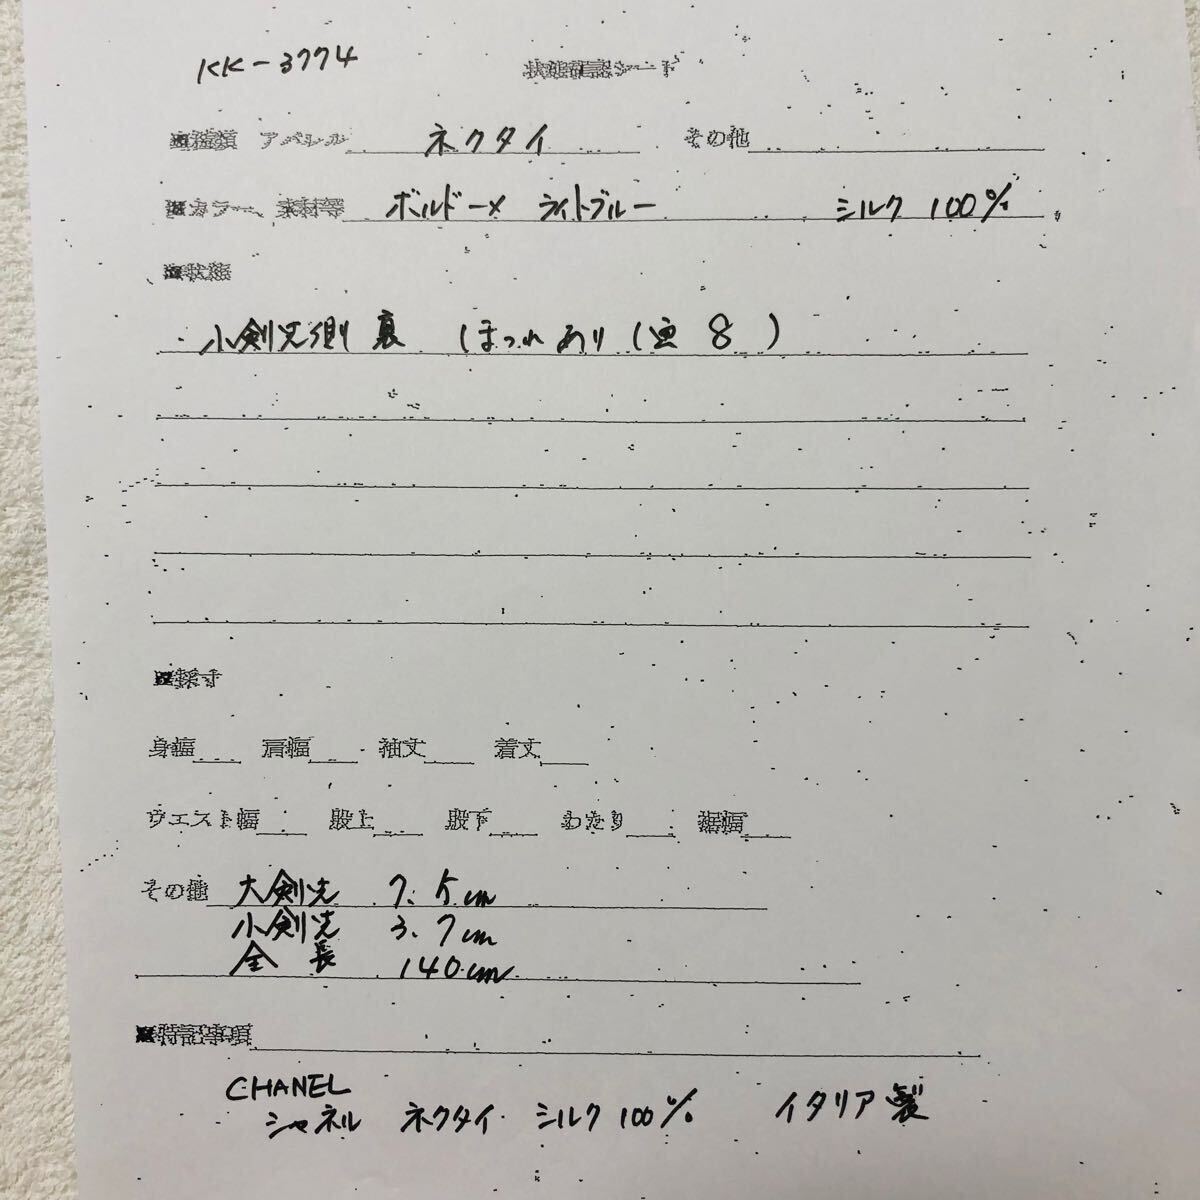 KK-3774 状態確認シート
■種類 アパレル ネクタイ その他
■カラー、素材等 ボルドー× ライトブルー シルク 100%
■状態
・小剣先側 裏 ほつれあり( 8 )
■採寸
身幅 肩幅 袖丈 着丈
ウエスト幅 股上 股下 わたり 裾幅
その他 大剣先 7.5cm
小剣先 3.7cm
全 長 140cm
■特記事項
CHANEL
シャネル ネクタイ シルク 100% イタリア製